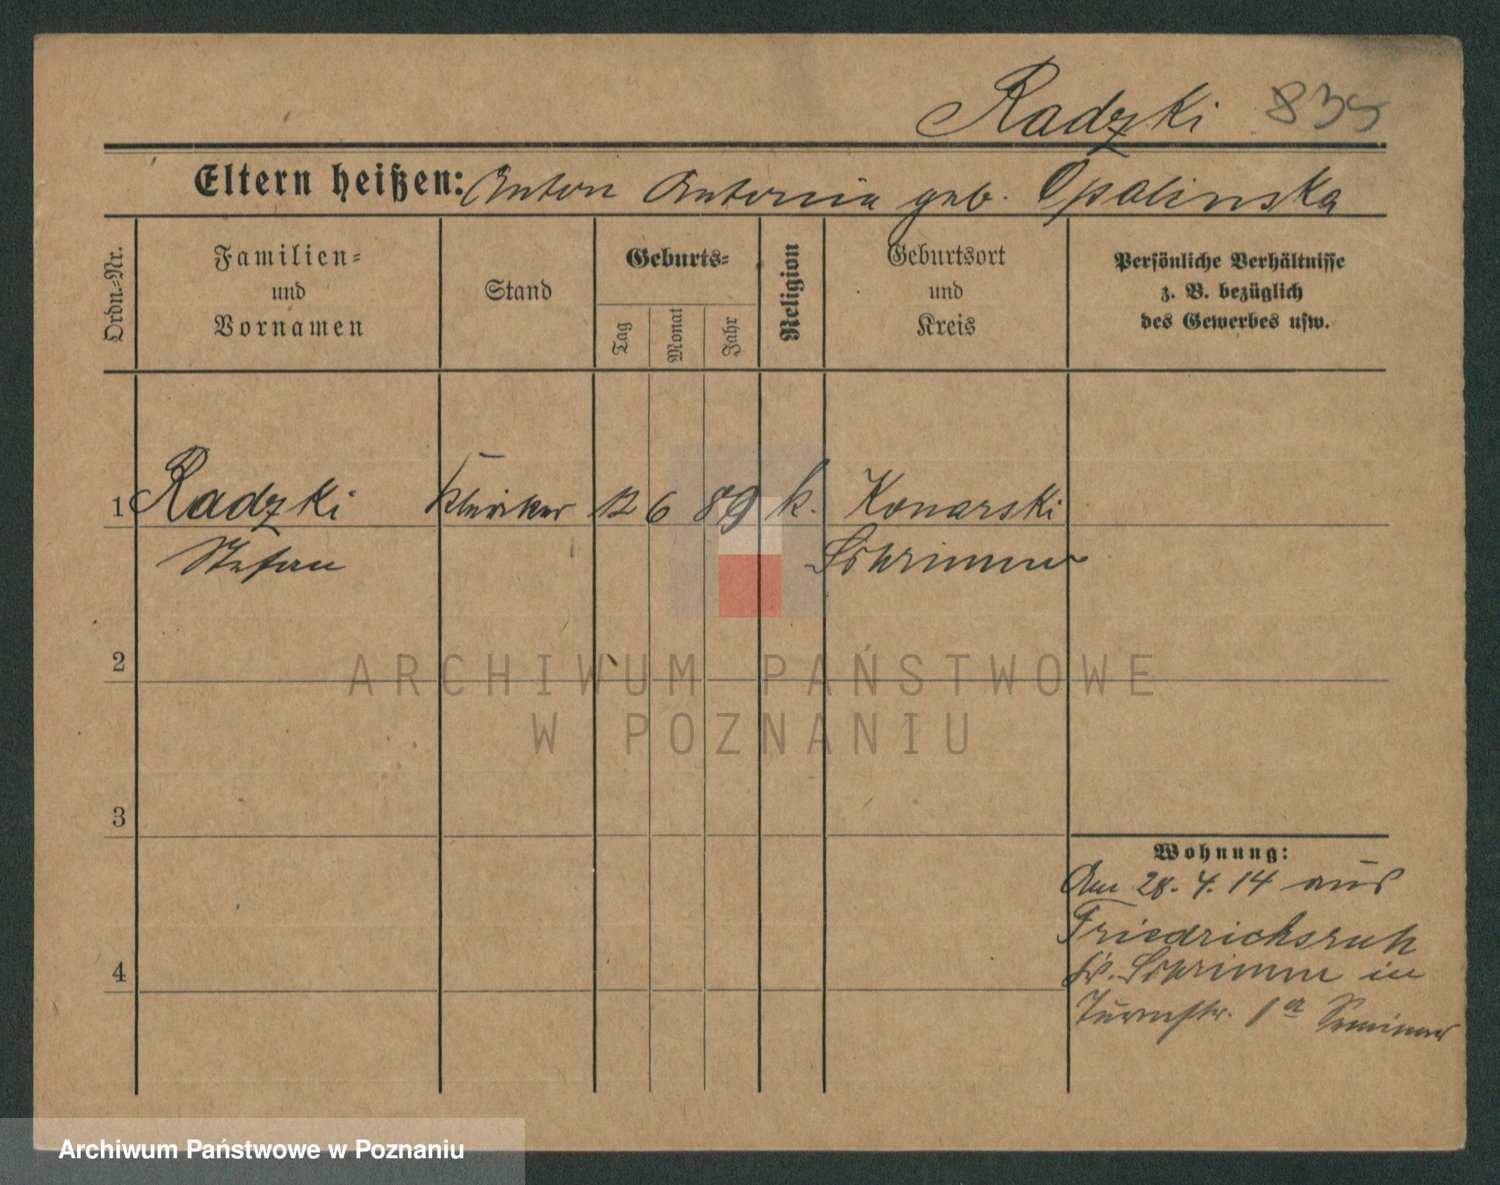 Radzki 835
Eltern heißen: Anton Antonia geb. Opalinska
Ordn.-Nr.
Familien-
und
Vornamen
Stand
Geburts-
Tag
Monat
Jahr
Religion
Geburtsort
und
Kreis
Persönliche Verhältnisse
z. B. bezüglich
des Gewerbes usw.
1 Radzki Kleriker 12 6 89 k. Konarski
Stefan Schrimm
2
ARCHIWUM PAŃSTWOWE
W POZNANIU
3
Wohnung:
Am 28.4.14 aus
Friedrichsruh
Kr. Schrimm in
4
Turmstr. 1a Seminar
Archiwum Państwowe w Poznaniu